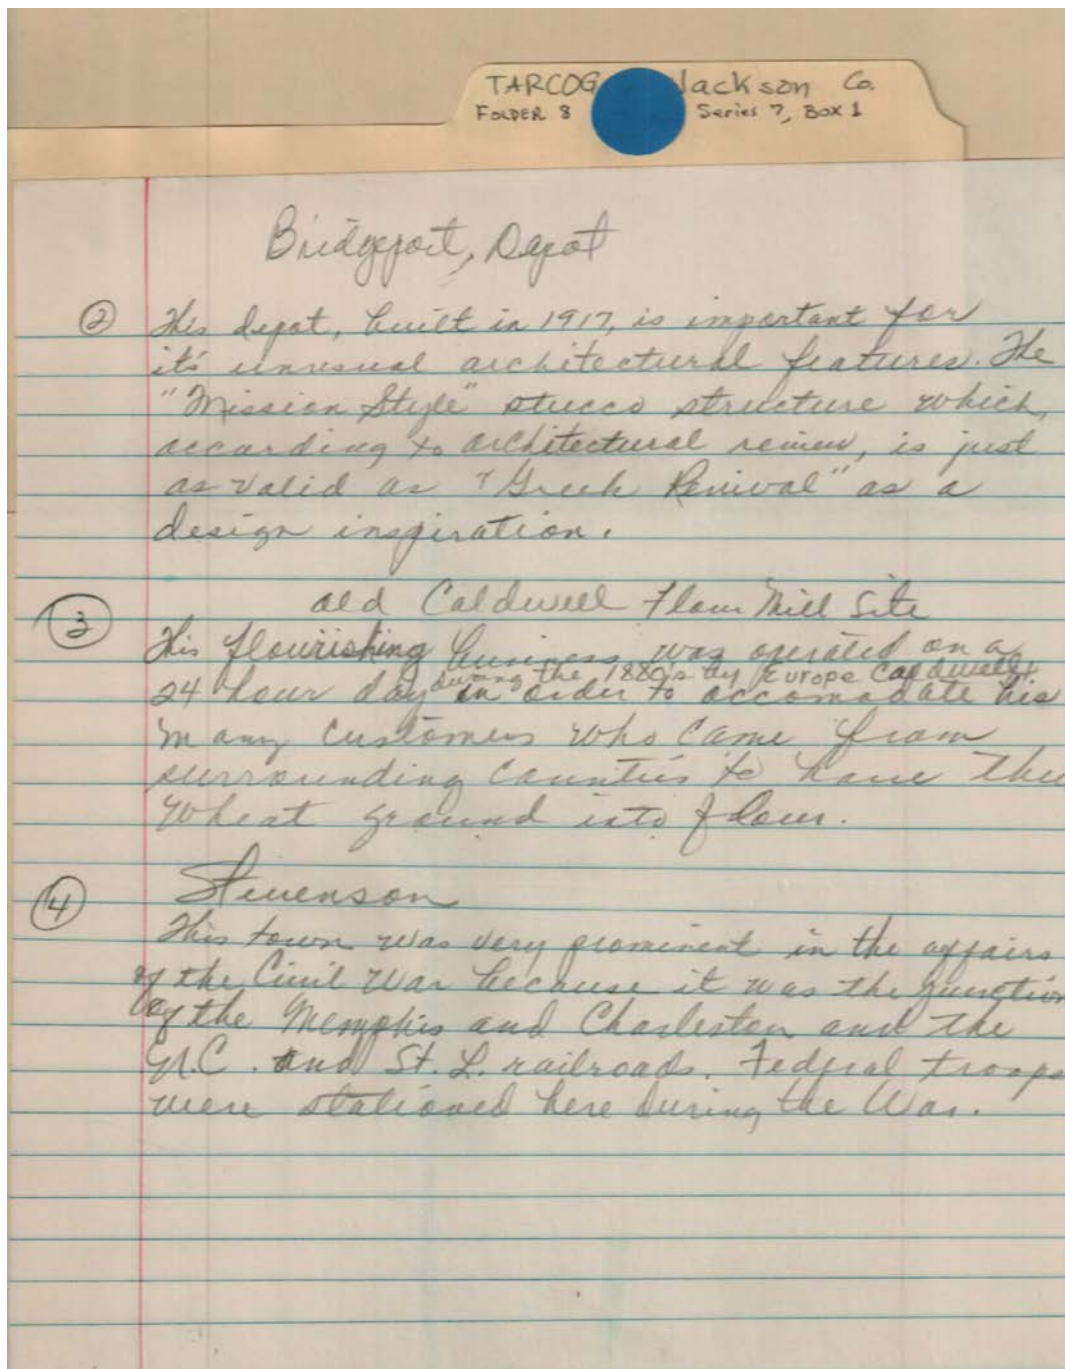 TARCOG Jackson Co.
FOLDER 8 Series 7, Box 1
Bridgeport, Depot
② This depot, built in 1917, is important for
it's unusual architectural features. The
"Mission Style" stucco structure which,
according to architectural review, is just
as valid as "Greek Revival" as a
design inspiration.
③ old Caldwell Flour Mill Site
This flourishing business was operated on a
during the 1880's by Europe Caldwell
24 hour day in order to accomodate his
many customers who came from
surrounding counties to have
wheat ground into flour.
④ Stevenson
This town was very prominent in the affairs
of the Civil War because it was the junction
of the Memphis and Charleston and the
N.C. and St. L. railroads. Federal troops
were stationed here during the War.